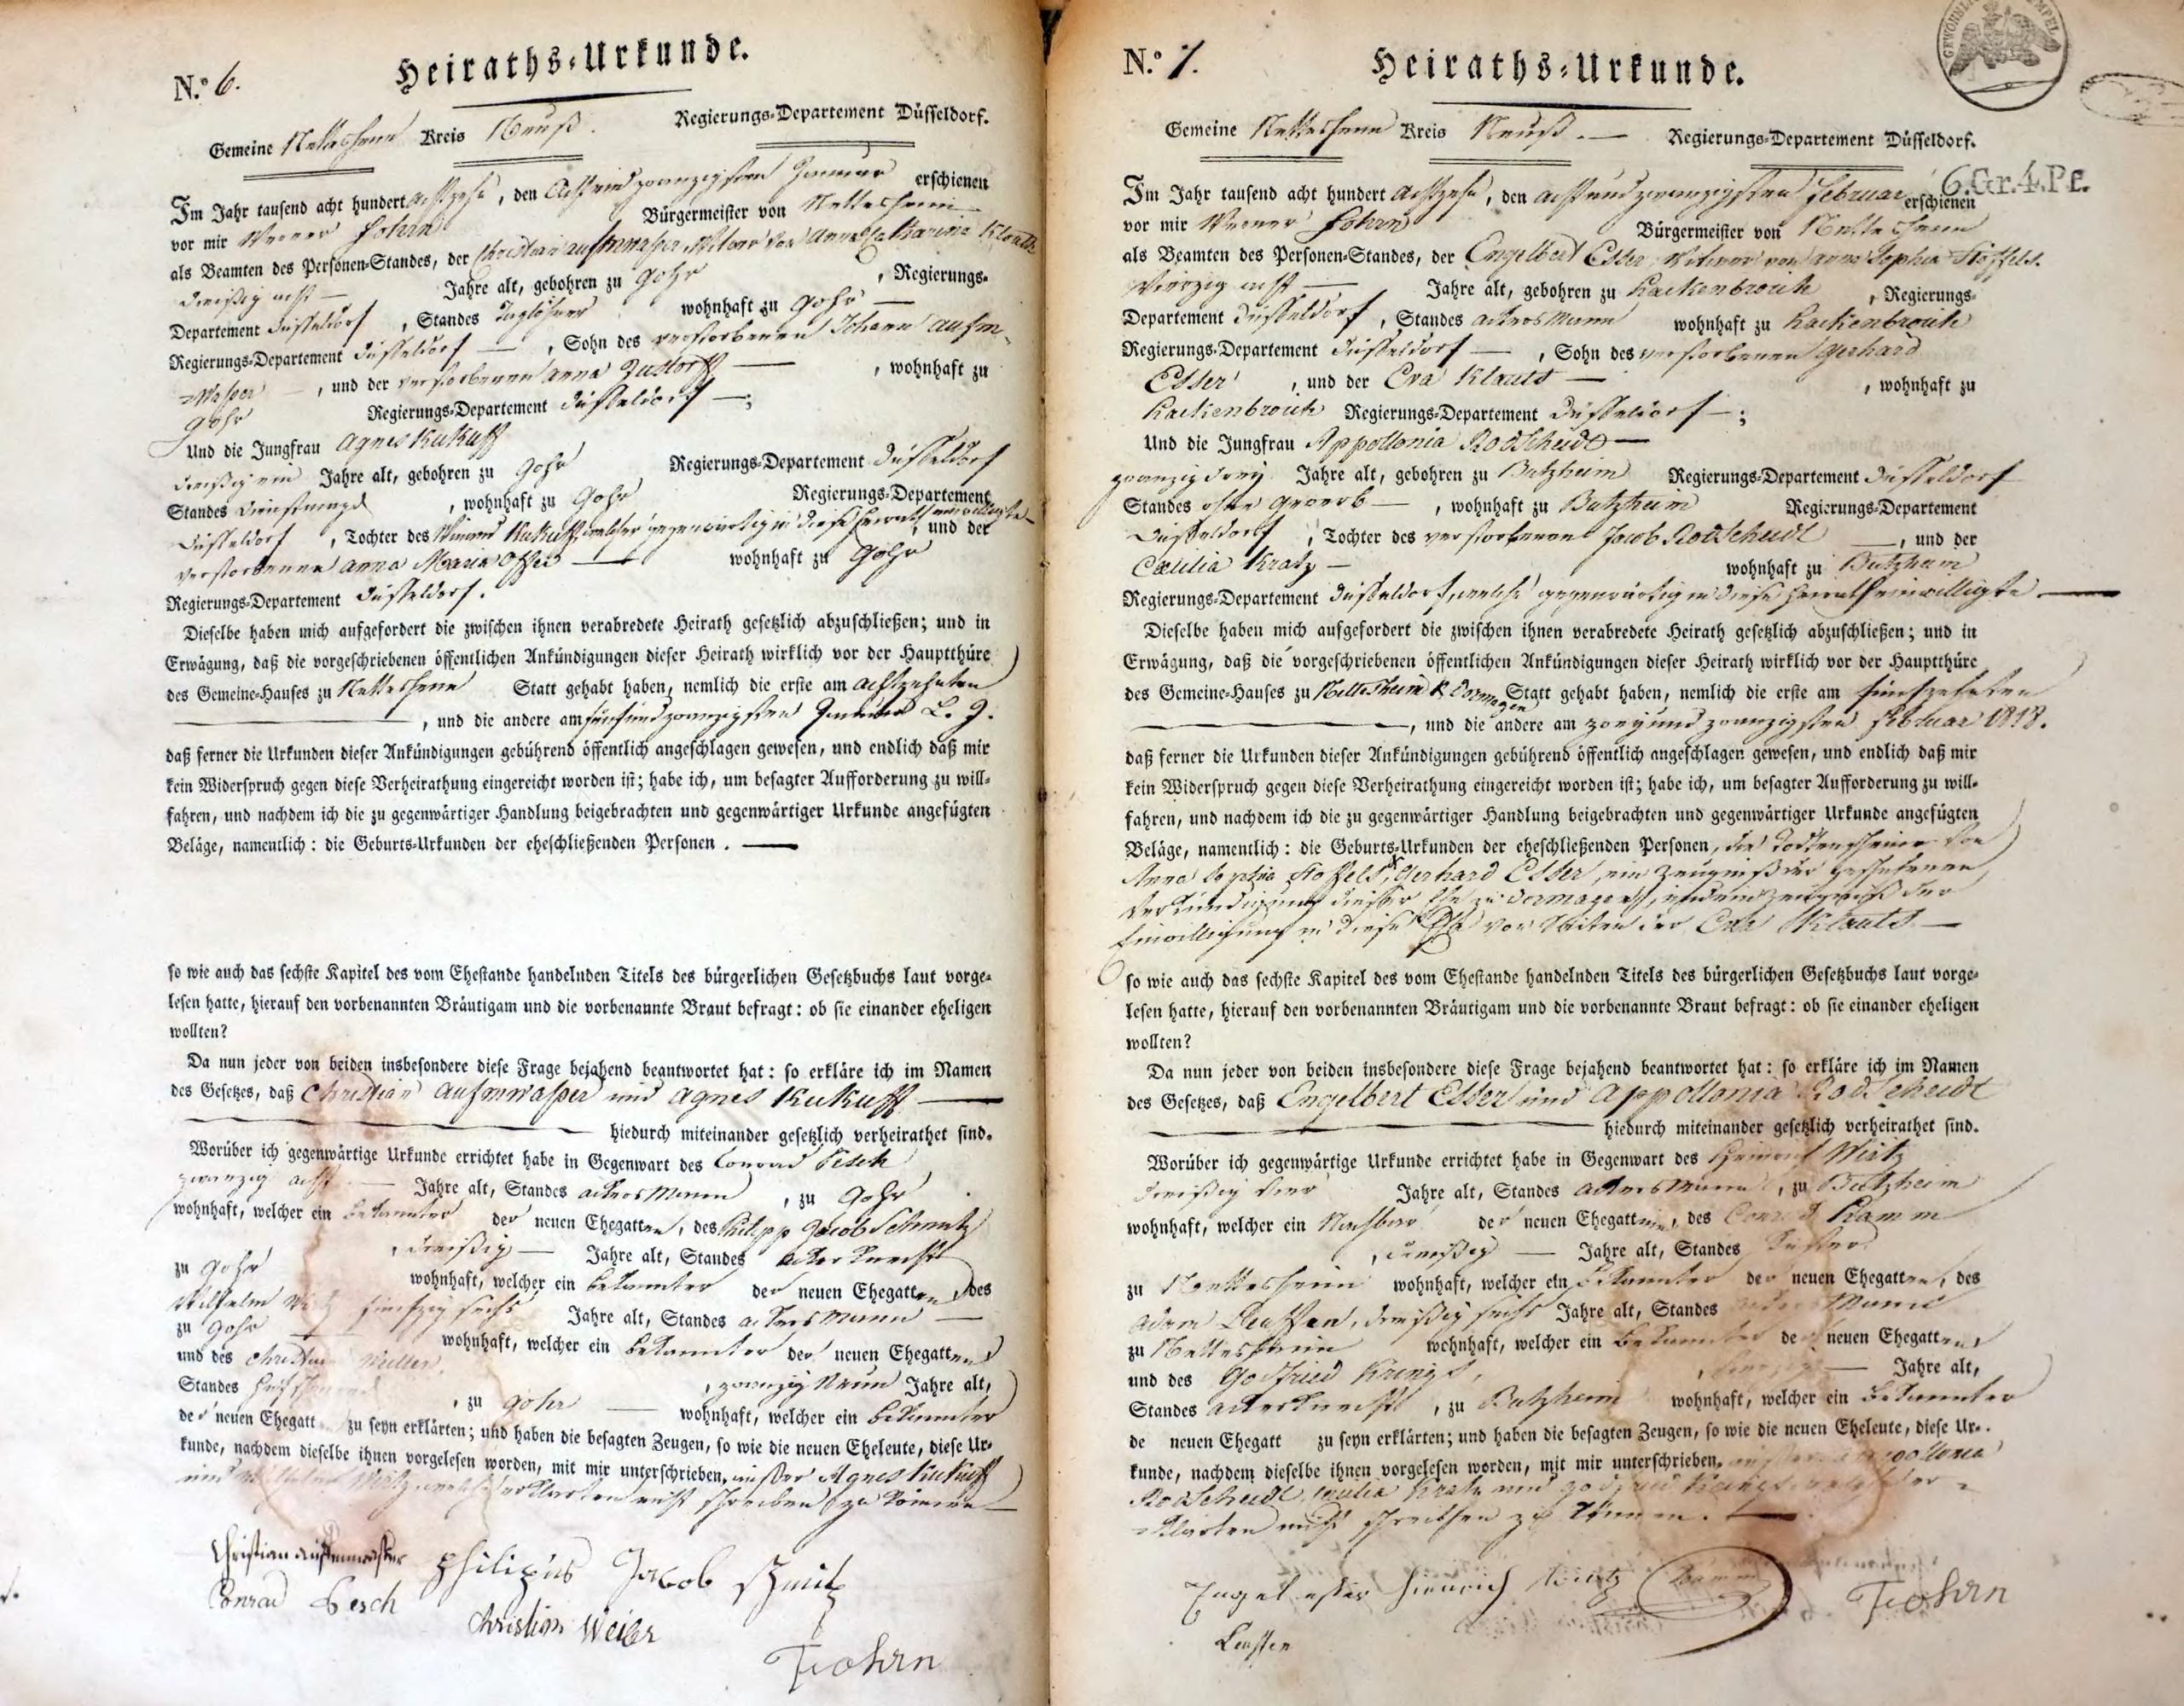 N.º 6.
Heiraths-Urkunde.
Gemeine Nettesheim Kreis Neuß. Regierungs-Departement Düsseldorf.
Im Jahr tausend acht hundert achtzehn, den Acht und zwanzigsten Januar erschienen
vor mir Werner Bürgermeister von Nettesheim
als Beamten des Personen-Standes, der Christian aufmwasser, Witwer von Anna Catharina
dreißig acht — Jahre alt, gebohren zu Gohr, Regierungs-
Departement Düsseldorf, Standes Taglöhner wohnhaft zu Gohr —
Regierungs-Departement Düsseldorf —, Sohn des verstorbenen Johann aufm-
wasser —, und der verstorbenen anna —, wohnhaft zu
Gohr Regierungs-Departement Düsseldorf —;
Und die Jungfrau Agnes Kukuff
dreißig ein Jahre alt, gebohren zu Gohr Regierungs-Departement Düsseldorf
Standes Dienstmagd, wohnhaft zu Gohr Regierungs-Departement
Düsseldorf, Tochter des Kukuff, welcher gegenwärtig in diese Heirath einwilligte, und der
verstorbenen anna Maria — wohnhaft zu Gohr
Regierungs-Departement Düsseldorf.
Dieselbe haben mich aufgefordert die zwischen ihnen verabredete Heirath gesetzlich abzuschließen; und in
Erwägung, daß die vorgeschriebenen öffentlichen Ankündigungen dieser Heirath wirklich vor der Hauptthüre
des Gemeine-Hauses zu Nettesheim Statt gehabt haben, nemlich die erste am achtzehnten
—, und die andere am fünfundzwanzigsten Januar l. J.
daß ferner die Urkunden dieser Ankündigungen gebührend öffentlich angeschlagen gewesen, und endlich daß mir
kein Widerspruch gegen diese Verheirathung eingereicht worden ist; habe ich, um besagter Aufforderung zu will-
fahren, und nachdem ich die zu gegenwärtiger Handlung beigebrachten und gegenwärtiger Urkunde angefügten
Beläge, namentlich: die Geburts-Urkunden der eheschließenden Personen. —
so wie auch das sechste Kapitel des vom Ehestande handelnden Titels des bürgerlichen Gesetzbuchs laut vorge-
lesen hatte, hierauf den vorbenannten Bräutigam und die vorbenannte Braut befragt: ob sie einander eheligen
wollten?
Da nun jeder von beiden insbesondere diese Frage bejahend beantwortet hat: so erkläre ich im Namen
des Gesetzes, daß Christian aufmwasser und Agnes Kukuff —
— hiedurch miteinander gesetzlich verheirathet sind.
Worüber ich gegenwärtige Urkunde errichtet habe in Gegenwart des Conrad Besch
zwanzig acht — Jahre alt, Standes ackersmann, zu Gohr
wohnhaft, welcher ein bekannter der neuen Ehegatten, des Philipp Jacob Schmitz
, dreißig — Jahre alt, Standes ackerknecht
zu Gohr wohnhaft, welcher ein bekannter der neuen Ehegatten, des
Wilhelm fünfzig sechs Jahre alt, Standes ackersmann —
zu Gohr wohnhaft, welcher ein bekannter der neuen Ehegatten
und des Christian , zwanzig Neun Jahre alt,
Standes , zu Gohr — wohnhaft, welcher ein bekannter
der neuen Ehegatt zu seyn erklärten; und haben die besagten Zeugen, so wie die neuen Eheleute, diese Ur-
kunde, nachdem dieselbe ihnen vorgelesen worden, mit mir unterschrieben, außer Agnes Kukuff
und welche erklärten nicht schreiben zu können —
Christian aufmwasser Philipus Jacob Schmitz
Conrad Besch
Christian Weiler
N.º 7.
Heiraths-Urkunde.
Gemeine Nettesheim Kreis Neuß. — Regierungs-Departement Düsseldorf.
6.Gr.4.Pf.
Im Jahr tausend acht hundert achtzehn, den achtundzwanzigsten Februar erschienen
vor mir Werner Bürgermeister von Nettesheim
als Beamten des Personen-Standes, der Engelbert Esser Witwer von anna Sophia Stoffels.
Vierzig acht — Jahre alt, gebohren zu Hackenbroich, Regierungs-
Departement Düsseldorf, Standes ackersmann wohnhaft zu Hackenbroich
Regierungs-Departement Düsseldorf —, Sohn des verstorbenen Gerhard
Esser, und der Eva Klauts —, wohnhaft zu
Hackenbroich Regierungs-Departement Düsseldorf —;
Und die Jungfrau Appollonia Rodscheidt —
zwanzig drey Jahre alt, gebohren zu Butzheim Regierungs-Departement Düsseldorf
Standes ohne Gewerb —, wohnhaft zu Butzheim Regierungs-Departement
Düsseldorf, Tochter des verstorbenen Jacob Rodscheidt —, und der
Cæcilia Kratz — wohnhaft zu Butzheim
Regierungs-Departement Düsseldorf, welche gegenwärtig in diese Heirath einwilligte. —
Dieselbe haben mich aufgefordert die zwischen ihnen verabredete Heirath gesetzlich abzuschließen; und in
Erwägung, daß die vorgeschriebenen öffentlichen Ankündigungen dieser Heirath wirklich vor der Hauptthüre
des Gemeine-Hauses zu Nettesheim & Dormagen Statt gehabt haben, nemlich die erste am fünfzehnten
—, und die andere am zweyundzwanzigsten Februar 1818.
daß ferner die Urkunden dieser Ankündigungen gebührend öffentlich angeschlagen gewesen, und endlich daß mir
kein Widerspruch gegen diese Verheirathung eingereicht worden ist; habe ich, um besagter Aufforderung zu will-
fahren, und nachdem ich die zu gegenwärtiger Handlung beigebrachten und gegenwärtiger Urkunde angefügten
Beläge, namentlich: die Geburts-Urkunden der eheschließenden Personen, die Todtenscheine von
Anna Sophia Stoffels, & Gerhard Esser, ein Zeugniß der geschehenen
Verkündigung dieser Ehe zu Dormagen, und ein Zeugniß der
Einwilligung in diese Ehe von Seiten der Eva Klauts —
so wie auch das sechste Kapitel des vom Ehestande handelnden Titels des bürgerlichen Gesetzbuchs laut vorge-
lesen hatte, hierauf den vorbenannten Bräutigam und die vorbenannte Braut befragt: ob sie einander eheligen
wollten?
Da nun jeder von beiden insbesondere diese Frage bejahend beantwortet hat: so erkläre ich im Namen
des Gesetzes, daß Engelbert Esser und Appollonia Rodscheidt
— hiedurch miteinander gesetzlich verheirathet sind.
Worüber ich gegenwärtige Urkunde errichtet habe in Gegenwart des Heinrich Wirtz
dreißig vier Jahre alt, Standes ackersmann, zu Butzheim
wohnhaft, welcher ein Nachbar der neuen Ehegattinn, des Conrad Hamm
, dreißig — Jahre alt, Standes Küster
zu Nettesheim wohnhaft, welcher ein bekannter der neuen Ehegatten, des
Adam , dreißig sechs Jahre alt, Standes ackersmann
zu Nettesheim wohnhaft, welcher ein bekannter der neuen Ehegatten,
und des Godfried Krings, — Jahre alt,
Standes ackerknecht, zu Butzheim wohnhaft, welcher ein bekannter
de neuen Ehegatt zu seyn erklärten; und haben die besagten Zeugen, so wie die neuen Eheleute, diese Ur-
kunde, nachdem dieselbe ihnen vorgelesen worden, mit mir unterschrieben, außer Appollonia
Rodscheidt, Cæcilia Kratz und Godfried Krings, welche er-
klärten nicht schreiben zu können. —
Engel esser Heinrich Wirtz Hamm